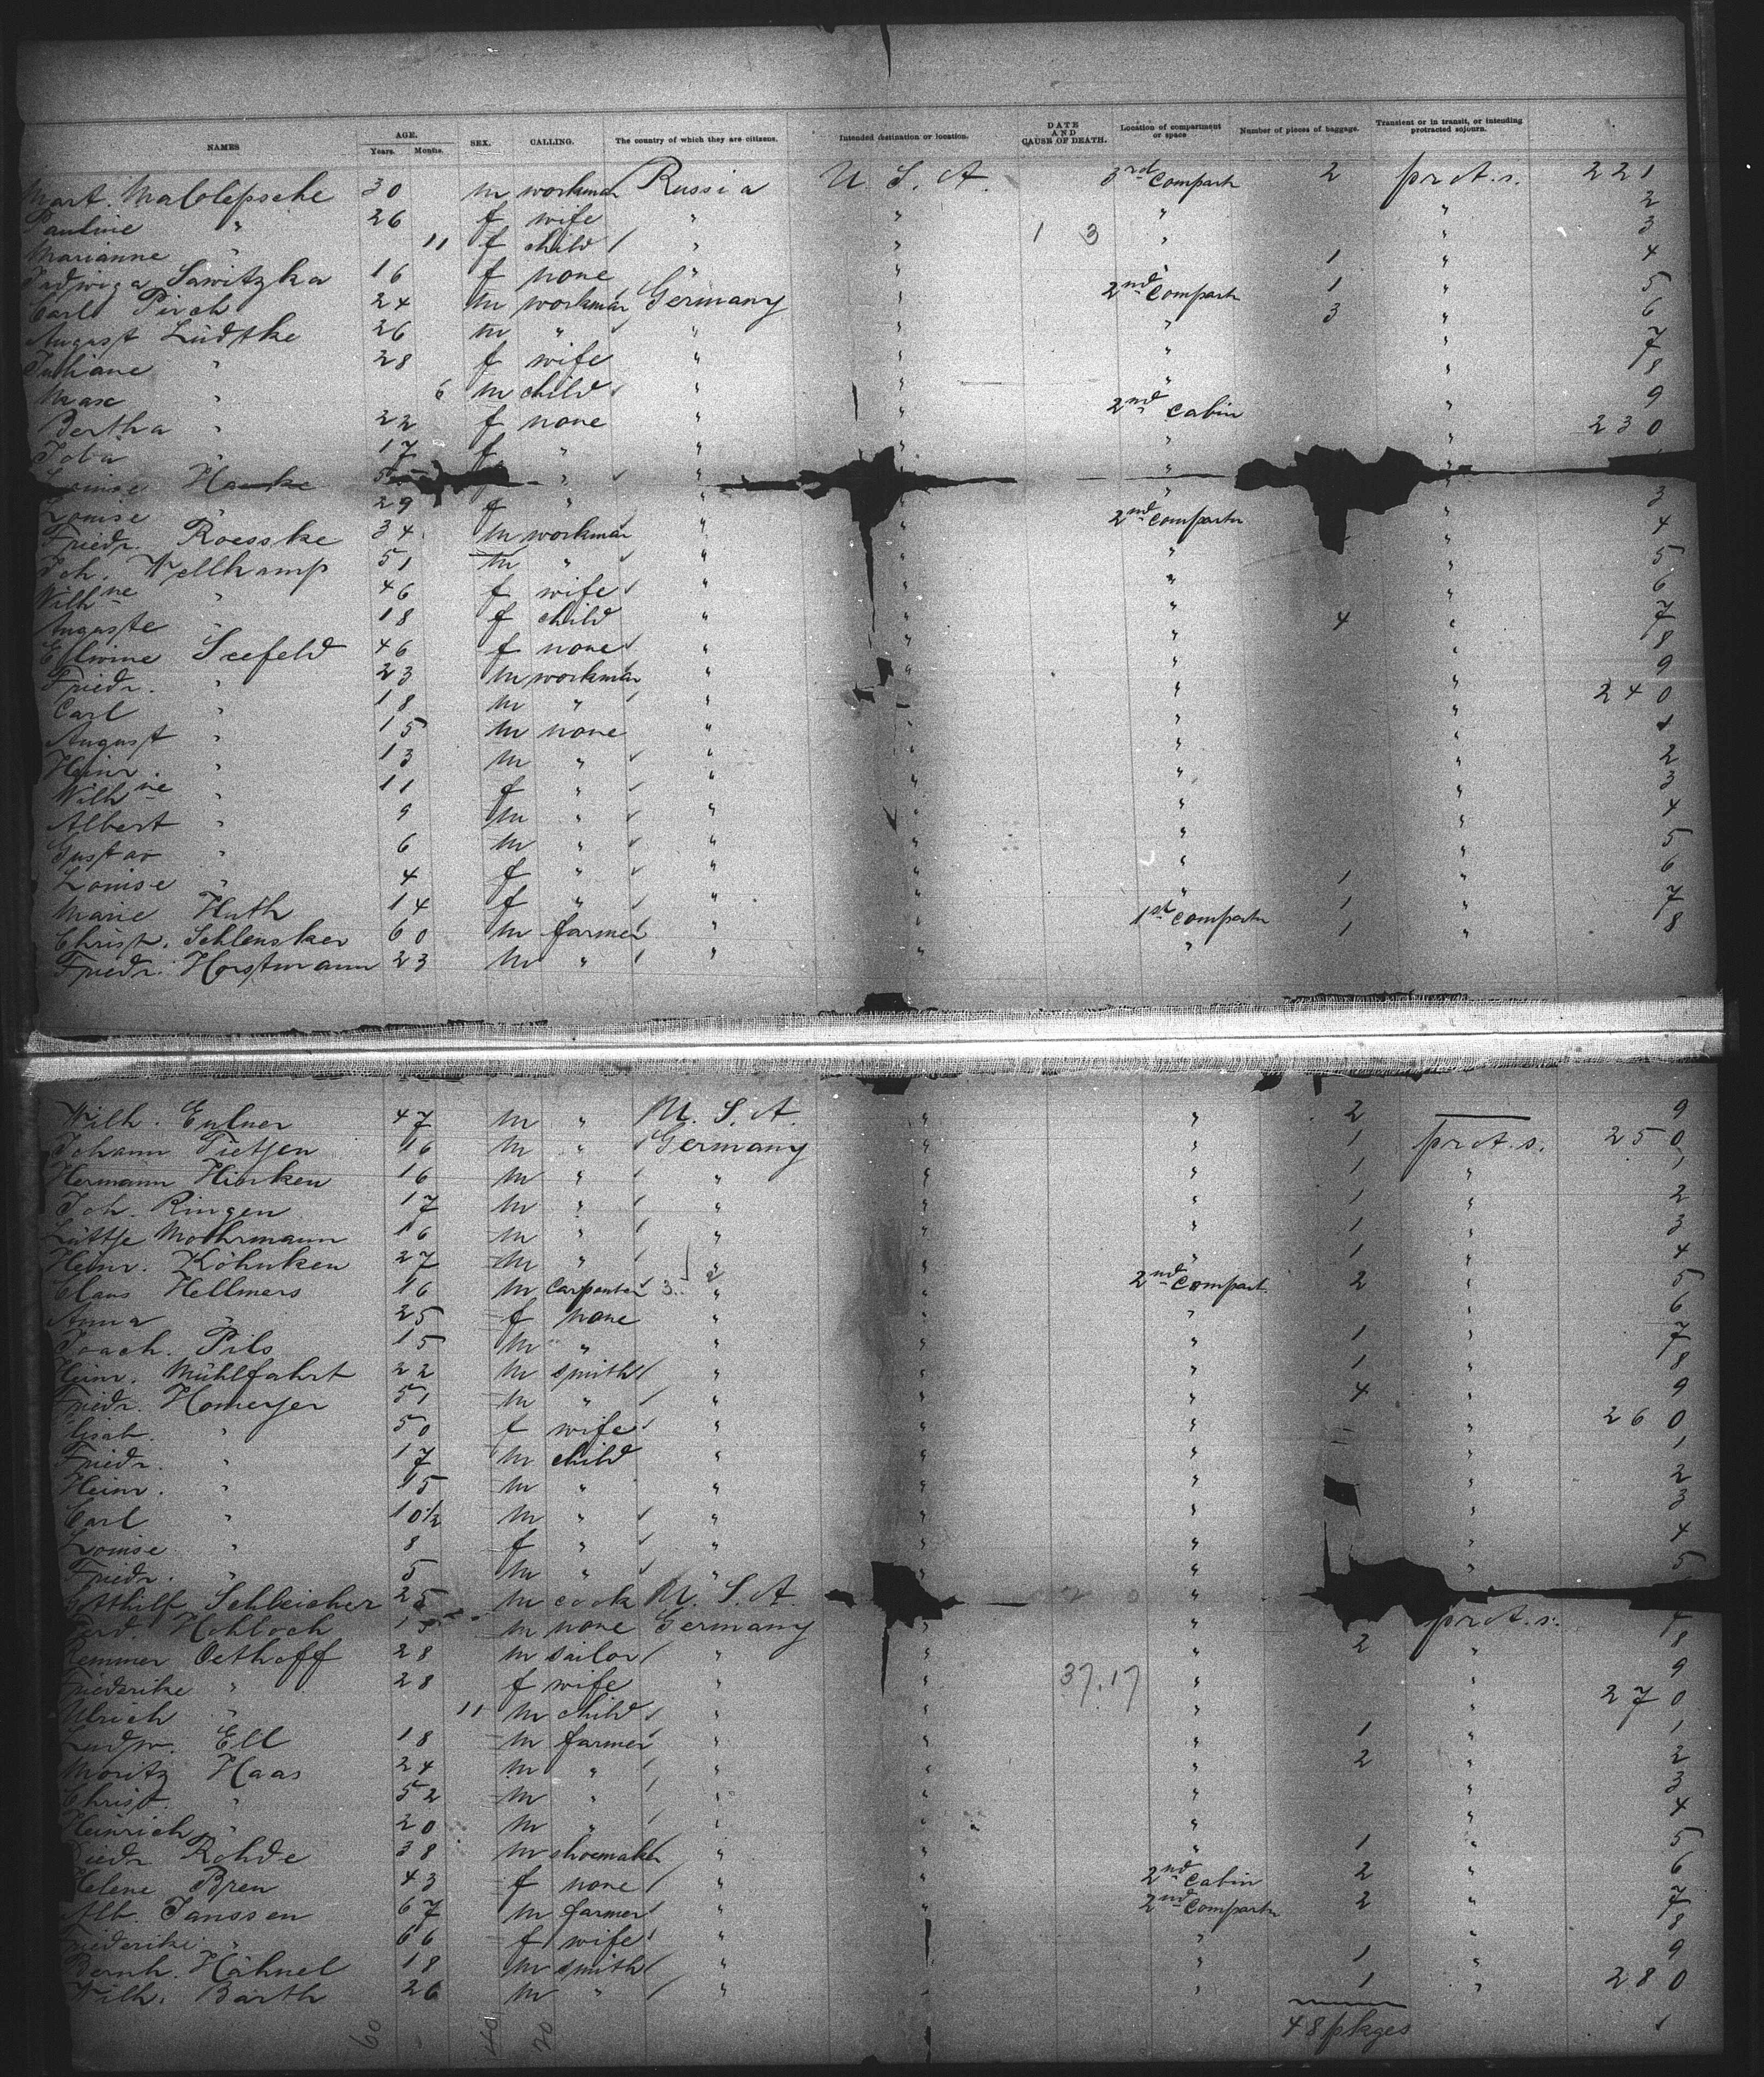 NAMES AGE. Years. Months. SEX. CALLING. The country of which they are citizens. Intended destination or location. DATE AND CAUSE OF DEATH. Location of compartment or space Number of pieces of baggage. Transient or in transit, or intending protracted sojourn.
Mart. Malolepsche 30 m workman Russia U. S. A. 3rd Compart 2 prot. s. 221
Pauline " 26 f wife " " " " 2
Marianne " 11 f child " " 1 3 " " 3
Jadwiga Sawitzka 16 f none " " " 1 " 4
Carl Pirch 24 m workman Germany " 2nd Compart 1 " 5
August Lüdtke 26 m " " " " 3 " 6
Juliane " 28 f wife " " " " 7
Max " 6 m child " " " " 8
Bertha " 22 f none " " 2nd Cabin " 9
" 17 f " " " " " 230
Louise
Louise " 29 f " " " " 3
Friedr. Roesske 34 m workman " " 2nd Compartm " 4
Joh. Wellkamp 51 m " " " " " 5
Wilhne " 46 f wife " " " " 6
Auguste " 18 f child " " " 4 " 7
Seefeld 46 f none " " " " 8
Friedr. " 23 m workman " " " " 9
Carl " 18 m " " " " " 240
August " 15 m none " " " " 1
Heinr. " 13 m " " " " " 2
Wilhne " 11 f " " " " " 3
Albert " 9 m " " " " " 4
Gustav " 6 m " " " " " 5
Louise " 4 f " " " " " 6
Marie Huth 14 f " " " " 1 " 7
Christ. Schlensker 60 m farmer " " 1st Compartm 1 " 8
Friedr. Horstmann 23 m " " " " 1 "
Wilh. Eulner 47 m " U. S. A. " " 2 — 9
Johann Tietjen 16 m " Germany " " 1 prot. s. 250
Hermann Hinken 16 m " " " " 1 " 1
Joh. Ringen 17 m " " " " 1 " 2
Lüttje Mothrmann 16 m " " " " 1 " 3
Heinr. Köhnken 27 m " " " " 1 " 4
Claus Hellmers 16 m Carpenter " " 2nd Compart. 2 " 5
Anna " 25 f none " " " " 6
Joach. Pils 15 m " " " " 1 " 7
Heinr. Mühlfahrt 22 m smith " " " 1 " 8
Friedr. Homeyer 51 m " " " " 4 " 9
" 50 f wife " " " " 260
Friedr. " 17 m child " " " " 1
Heinr. " 15 m " " " " " 2
Carl " 10½ m " " " " " 3
Louise " 8 f " " " " " 4
Friedr. " 5 m " " " " " 5
Schleicher 25 m cook U. S. A "
Hohloch 15 m none Germany " " prot. s. 7
Remmer Oethoff 28 m sailor " " " 2 " 8
Friederike " 28 f wife " " 37.17 " " 9
Ulrich " 11 m child " " " " 270
Ludw. Ell 18 m farmer " " " 1 " 1
Moritz Haas 24 m " " " " 2 " 2
Christ. " 52 m " " " " " 3
Heinrich " 20 m " " " " " 4
Friedr Rohde 38 m shoemaker " " " 1 " 5
Helene Bren 43 f none " " 2nd Cabin 2 " 6
Alb. Janssen 67 m farmer " " 2nd Compartm 2 " 7
Friederike " 66 f wife " " " " 8
Bernh. Hähnel 18 m smith " " " 1 " 9
Wilh. Barth 26 m " " " " 1 " 280
60 40 20 48 pkges 1